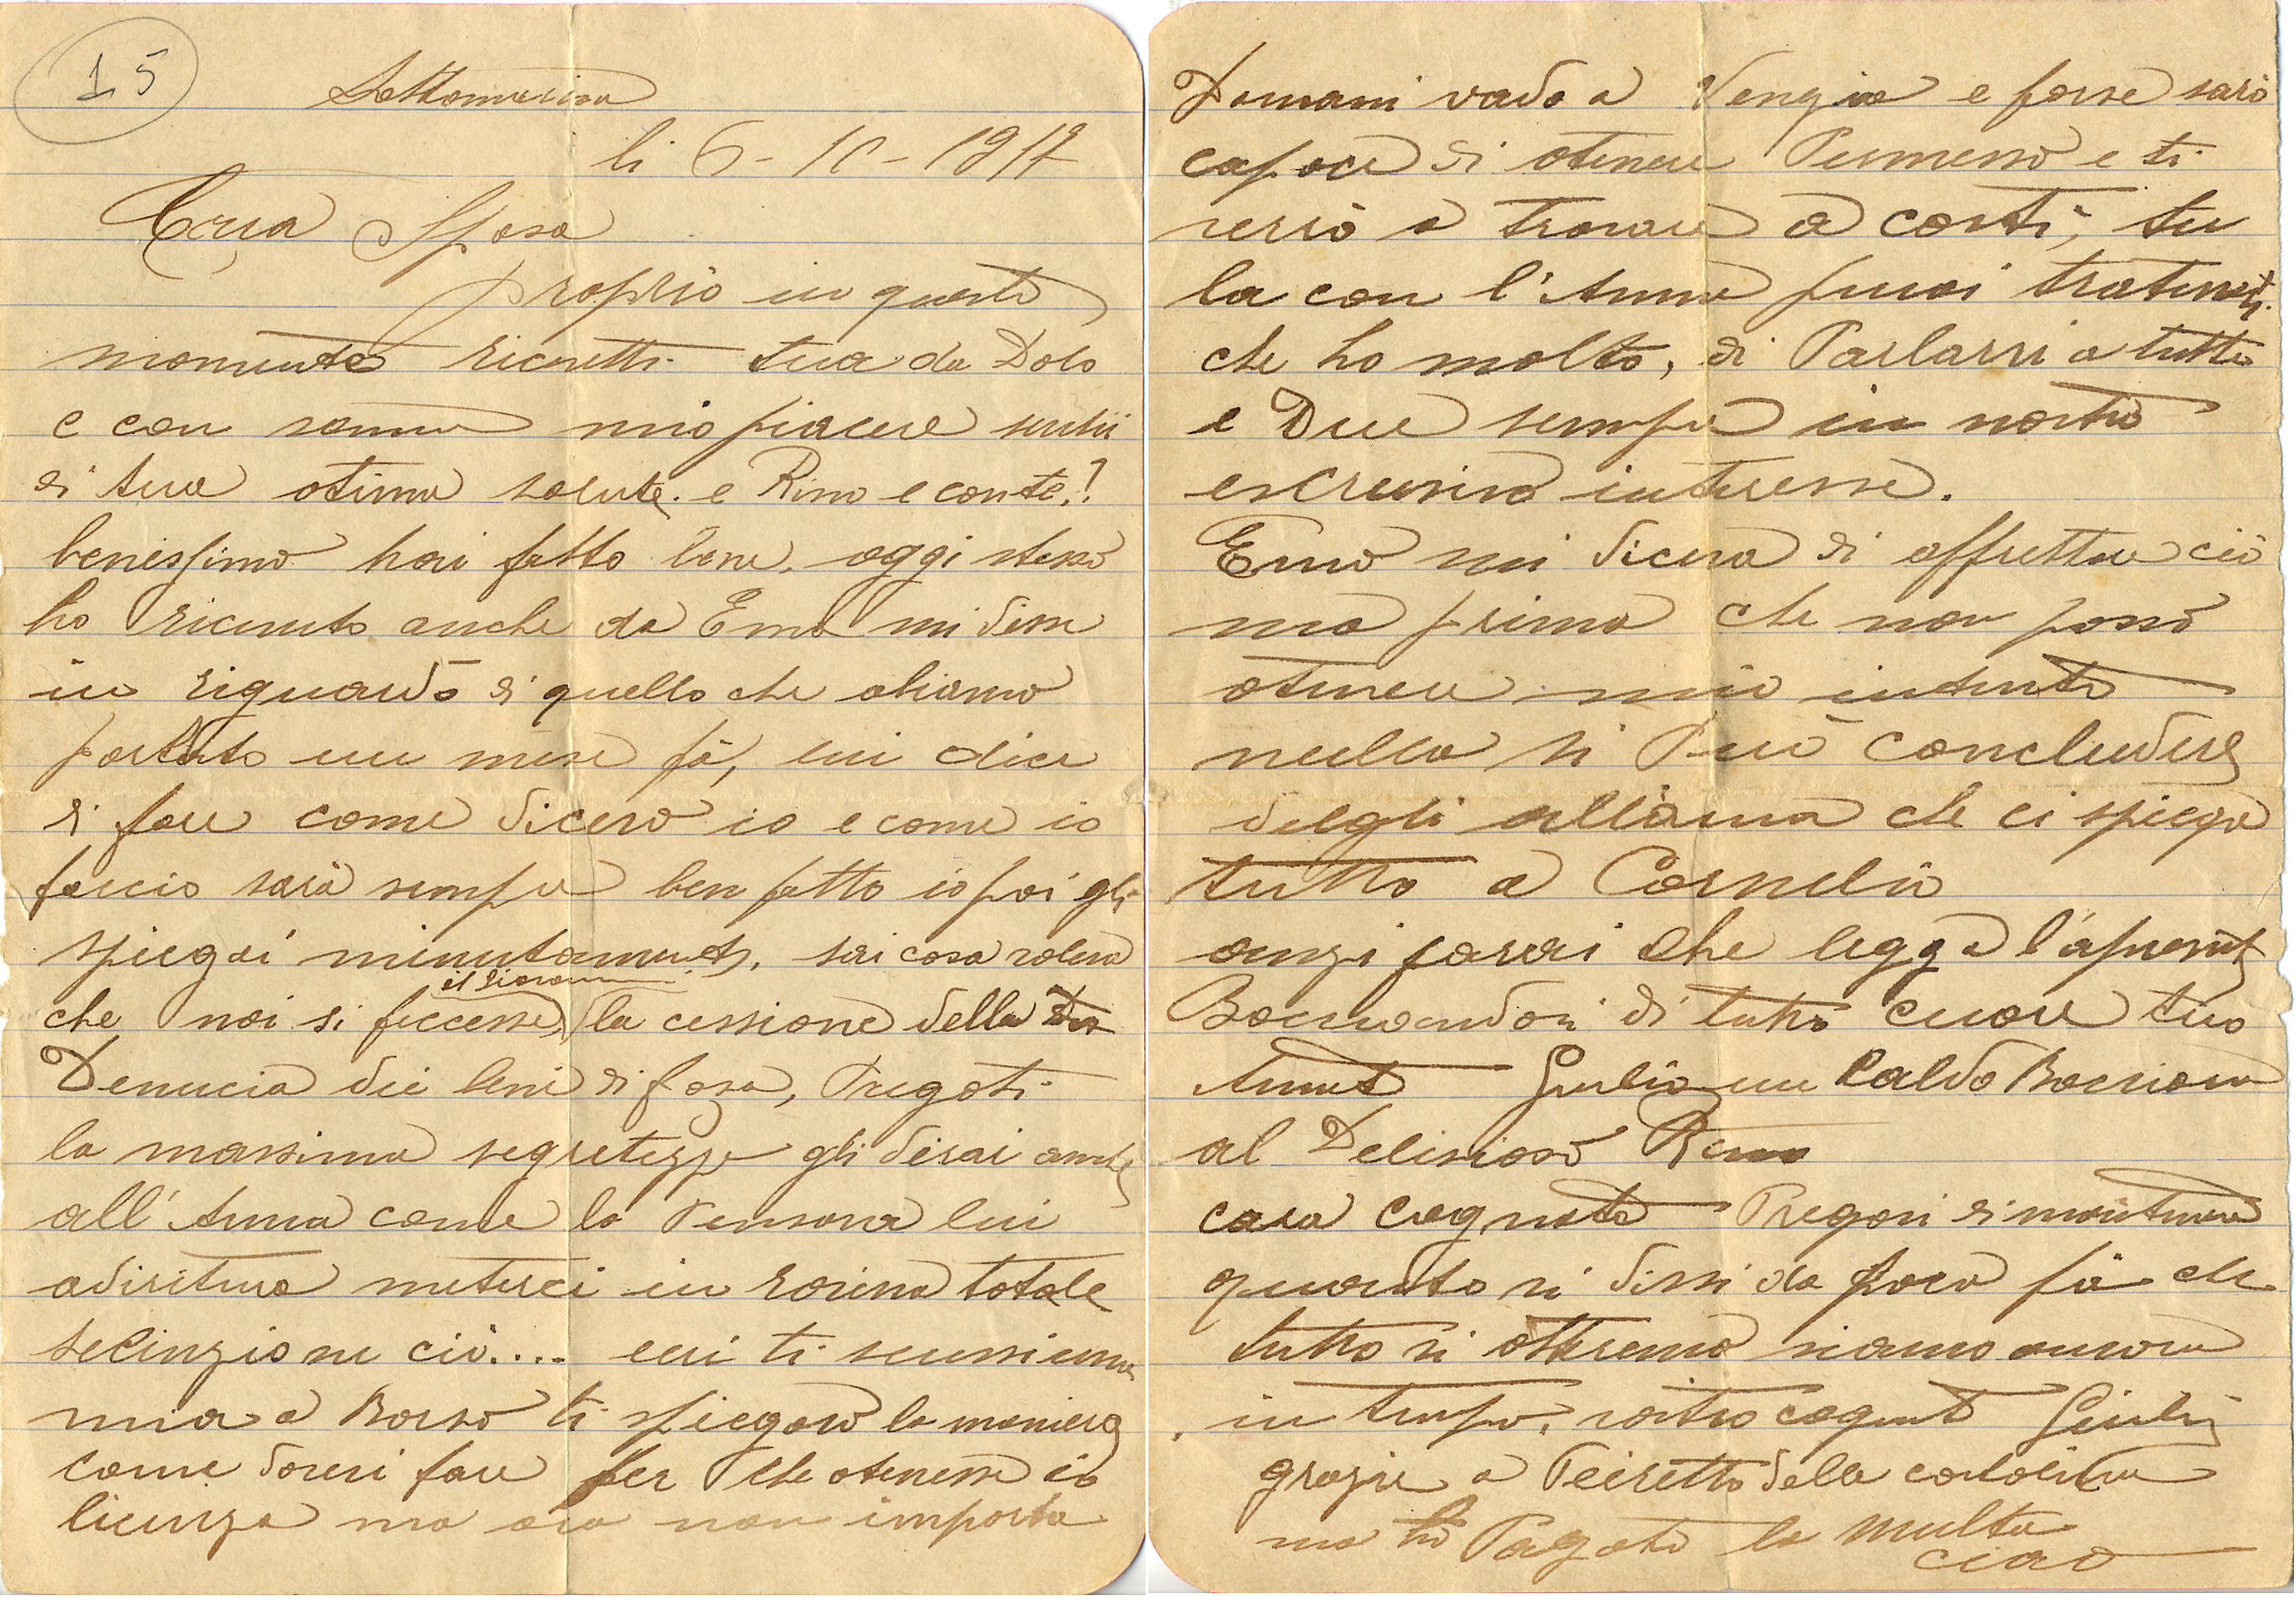 15
Sottomarina
li 6-10-1917
Cara Sposa
proprio in questo
momento ricevetti tua da Dolo
e con sommo mio piacere sentii
di tua otima salute. e Rino e conte?!
benissimo hai fatto bene. oggi stesso
ho ricevuto anche da Emo mi disse
in riguardo di quello che abiamo
parlato un mese fà, lui dice
di fare come dicevo io e come io
faccio sarà sempre ben fatto io poi gli
spiegai minutamente. sai cosa voleva
che noi si feccesse il Giovanni la cessione della
Denucia dei beni di foza, Pregoti
la massima segretezza gli dirai anche
all'Anna come la Pensava lui
adiritura meterci in rovina totale
ciò.... eri ti
mia a Borso ti spiegavo la maniera
come dovevi fare per che otenesse io
licenza ma ora non importa
Domani vado a e forse sarò
capace di otenere Permesso e ti
verrò a trovare a costì, tu
la con l'Anna puoi
che ho molto, di Parlarvi a tutte
e Due sempre in nostro
esclusivo interesse.
Emo mi diceva di affrettare ciò
ma prima che non posso
otenere mio intento
nulla si Può concludere
delgli all'Anna che ci spiega
tutto a Cornelio
anzi farai che legga l'apresente
Baciandovi di tutto cuore tuo
Giulio un Caldo Bacione
al Delisioso Remo
cara cognata Pregovi di mantenere
quanto vi dissi da poco fà che
tutto si otteremo siamo ancora
in tempo. vostro cognato Giulio
grazie a Pieretto della cartolina
ma ho Pagato la multa
ciao